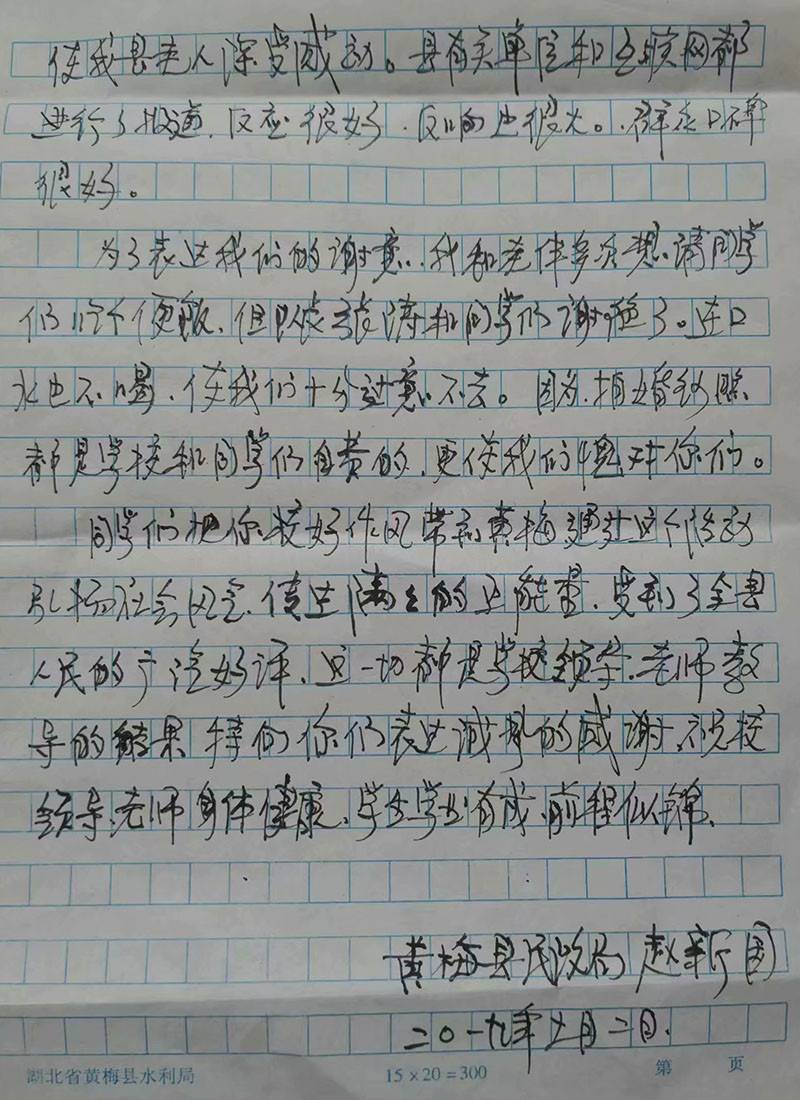 使我县老人深受感动。县有关单位和互联网都
进行了报道，反应很好，反响也很大。群众口碑
很好。
为了表达我们的谢意，我和老伴多次想请同学
们吃个便飯，但以袁 涛和同学们谢绝了。连口
水也不喝，使我们十分过意不去。因为，拍婚纱照
都是学校和同学们自费的，更使我们愧对你们。
同学们把你校好作风带到黄梅通过这个活动
弘扬社会风气，传达满满的正能量，受到了全县
人民的广泛好评，这一切都是学校领导、老师教
导的结果 特向你们表达诚挚的感谢，祝贵校
领导、老师身体健康、学生学业有成、前程似锦、
黄梅县民政局 赵新国
二〇一九年 月二日．
湖北省黄梅县水利局 15×20=300 第 页